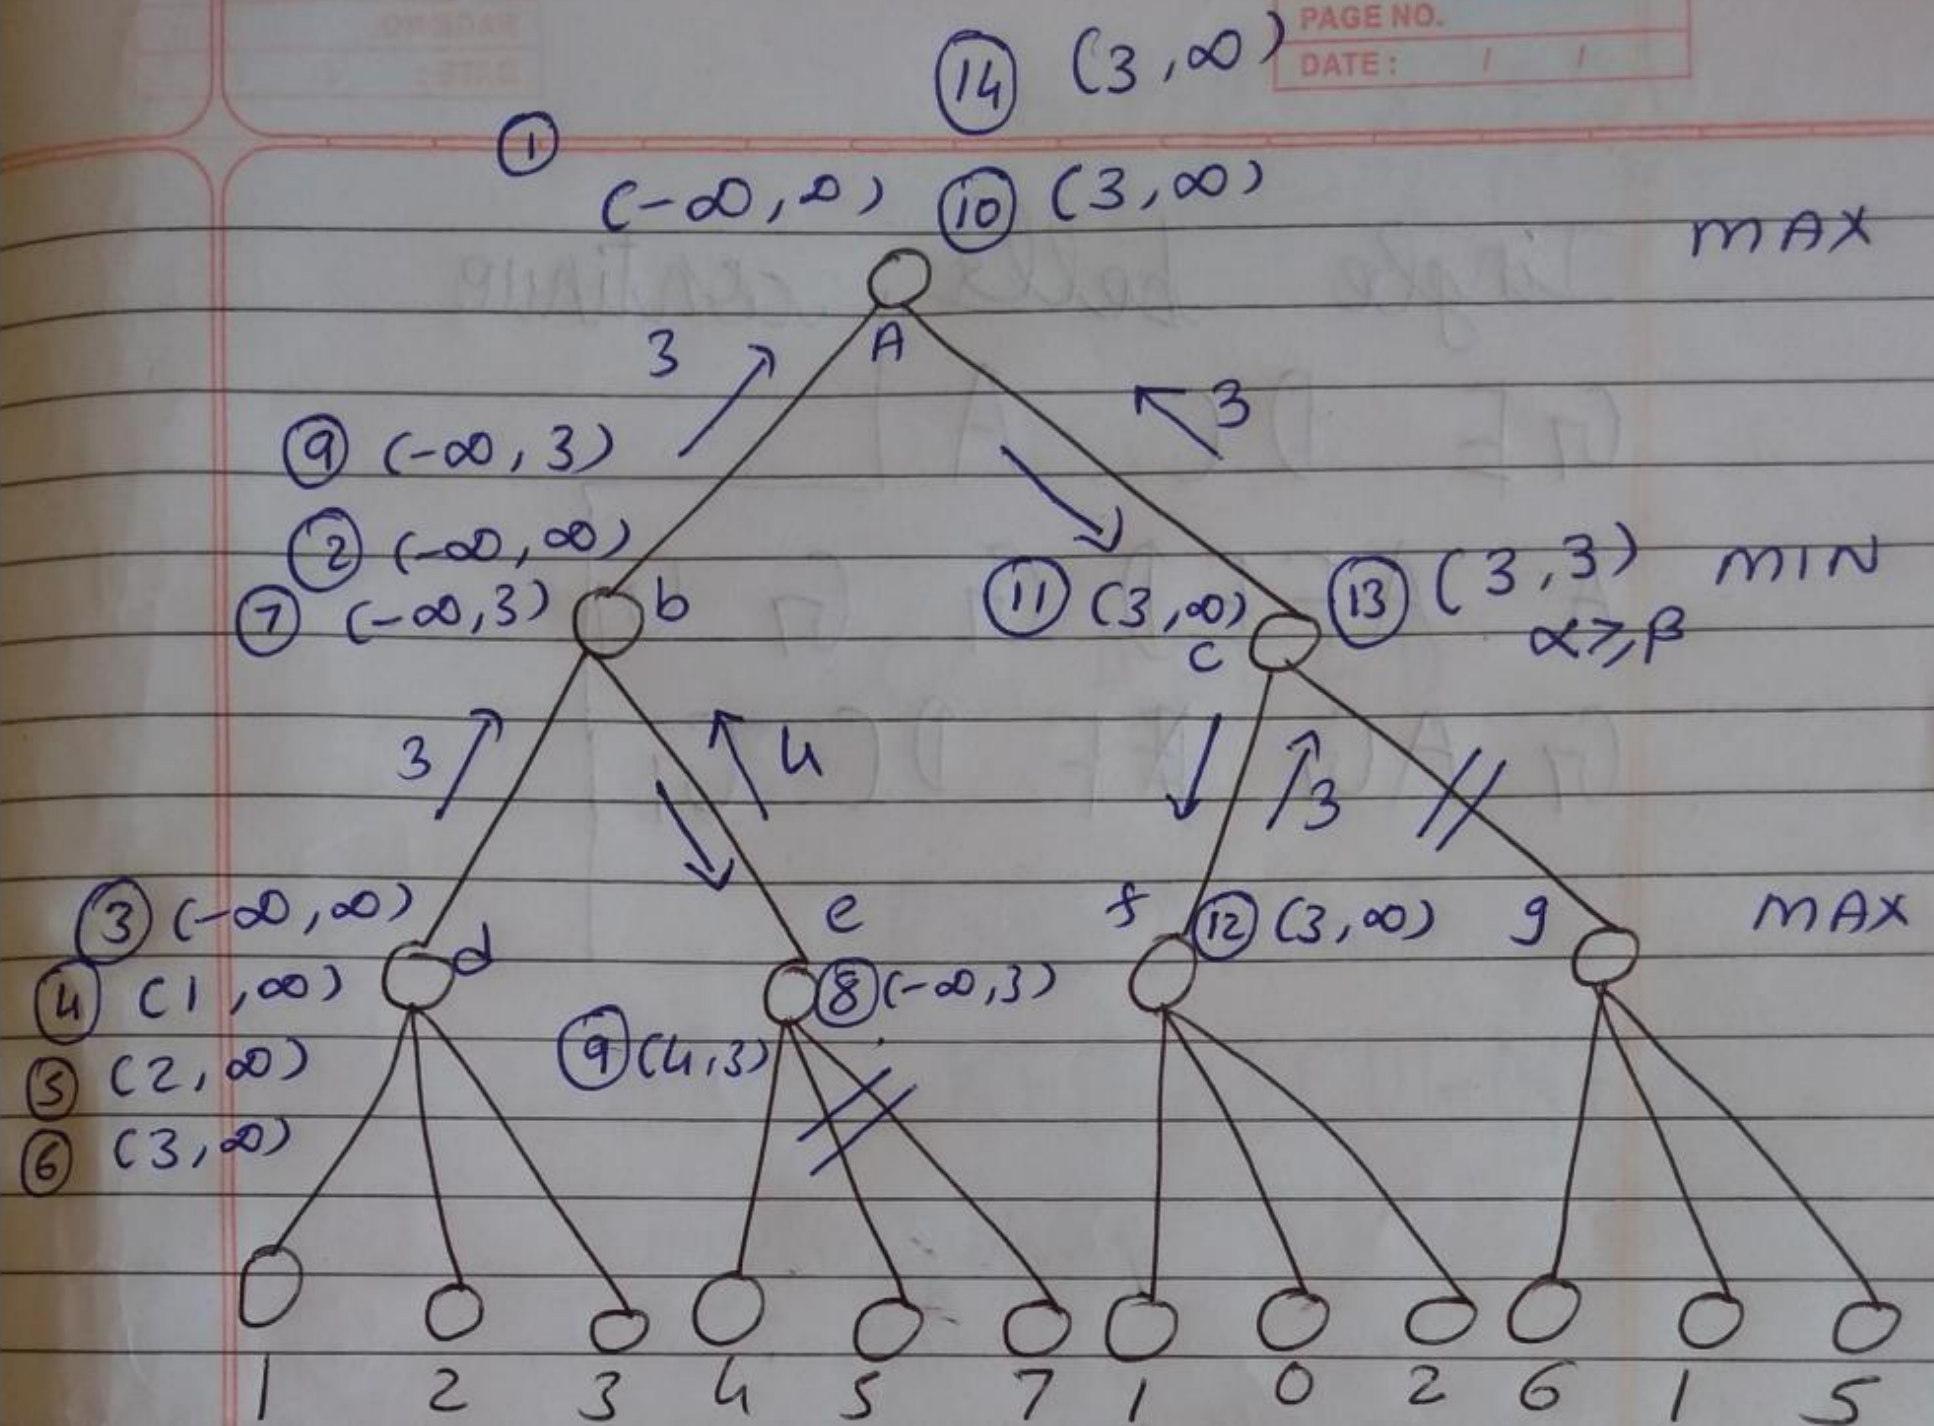 PAGE NO.
DATE: / /
⑭ (3,∞)
①
(-∞,∞) ⑩ (3,∞)
MAX
A
3
3
⑨ (-∞,3)
② (-∞,∞)
⑦ (-∞,3) b
⑪ (3,∞) c
⑬ (3,3) MIN
α≥β
3
4
3
③ (-∞,∞) d
④ (1,∞)
⑤ (2,∞)
⑥ (3,∞)
e
⑧ (-∞,3)
⑨ (4,3)
f ⑫ (3,∞) g MAX
1 2 3 4 5 7 1 0 2 6 1 5